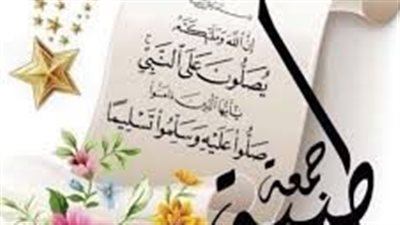 إن الله وملئكته
يصلون على النبي
يأيها الذين ءامنوا
صلوا عليه وسلموا تسليما
جمعة
طيبة